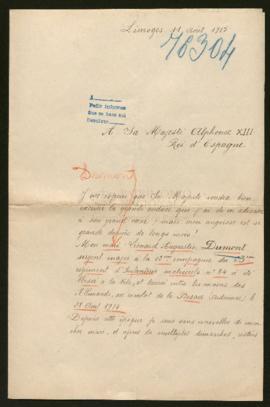 Limoges, 11 Août 1915
78304
A
Pedir informes
Que se hace sui
A Sa Majesté Alphonse XIII
Roi d'Espagne
Dumont
J'ose espérer que Sa Majesté voudra bien
excuser la grande audace que j'ai de m'adresser
à son grand cœur! mais mon angoisse est si
grande depuis de longs mois!
Mon mari Léonard Augustin Dumont
sergent major à la compagnie du
régiment d'Infanterie matricule n° 84 a été
blessé à la tête, et laissé entre les mains des
Allemands, au combat de la (Ardennes) le
28 Août 1914
Depuis cette époque je suis sans nouvelles de mon
cher mari, et après de multiples démarches, restées